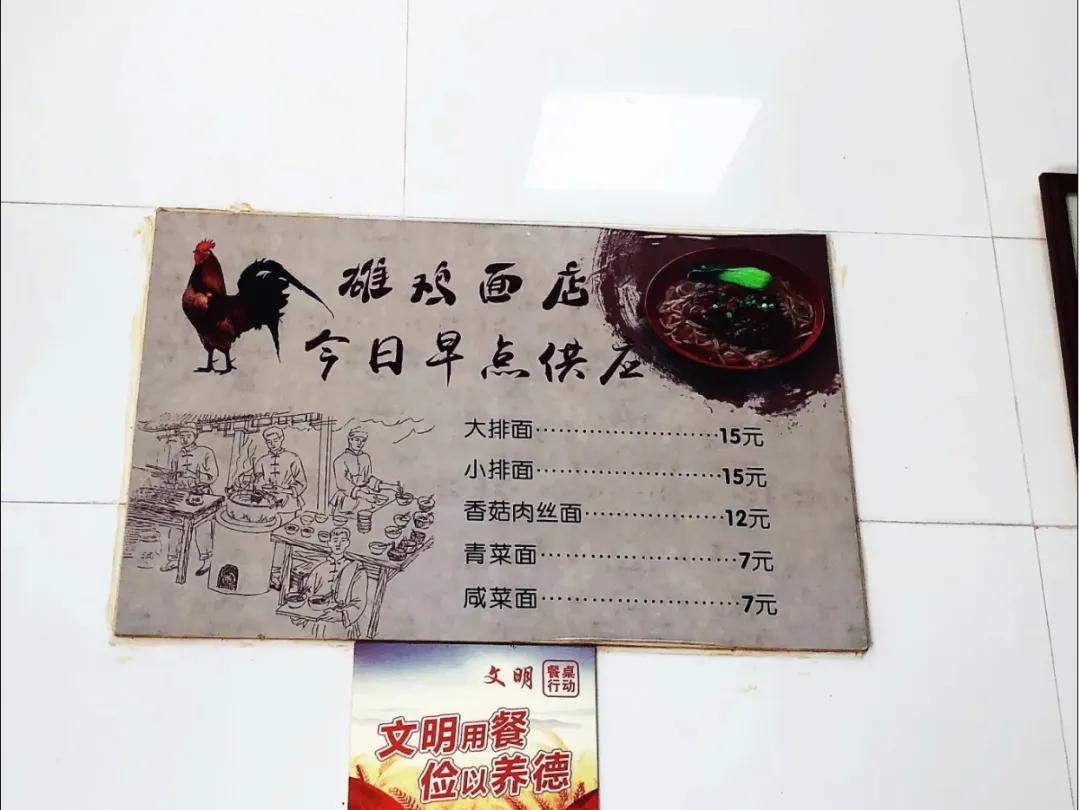 雄鸡面店
今日早点供应
大排面························15元
小排面························15元
香菇肉丝面··················12元
青菜面··························7元
咸菜面··························7元
文明 餐桌行动
文明用餐
俭以养德